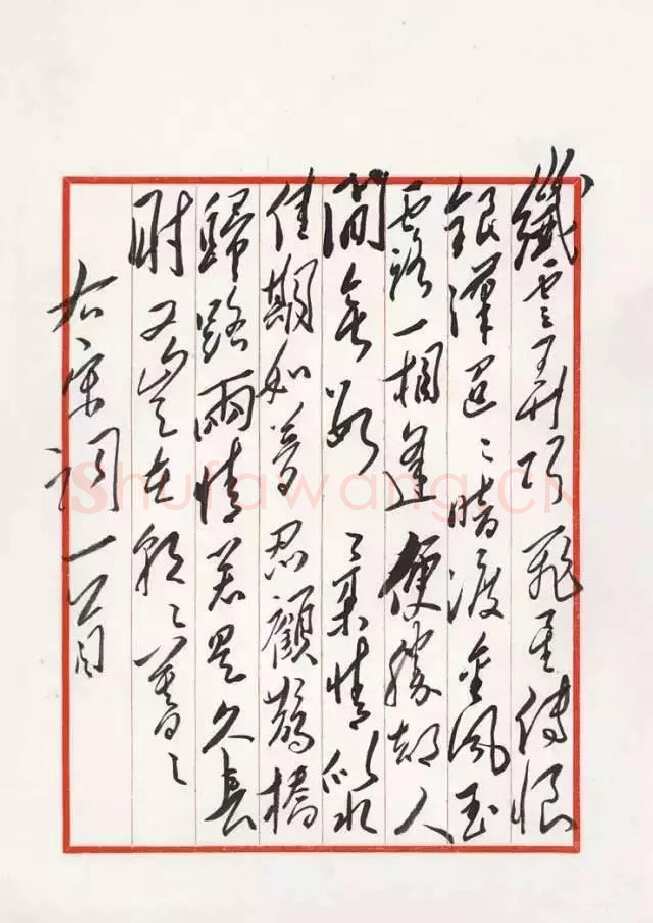 纖雲弄巧飛星傳恨
銀漢迢々暗渡金風玉
露一相逢便勝却人
間無數 柔情似水
佳期如夢忍顧鵲橋
歸路兩情若是久長
時又豈在朝々暮々
右宋詞一首
Shufawang.CN